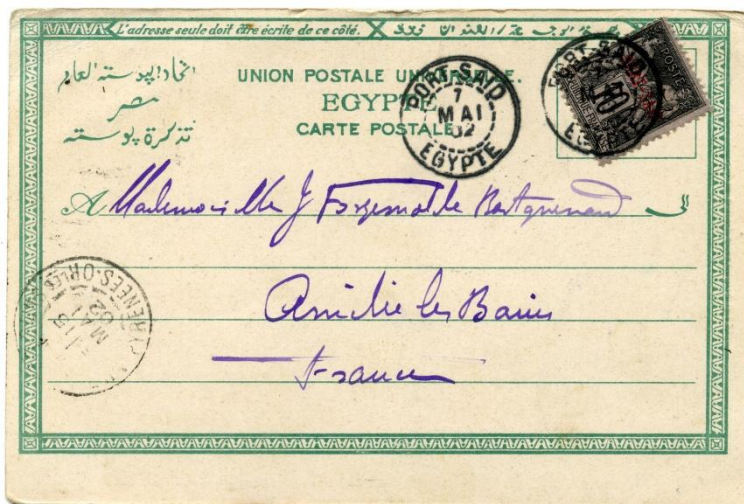 L'adresse seule doit être écrite de ce côté.
اتحاد البوسته العام
مصر
تذكرة بوسته
UNION POSTALE UNIVERSELLE.
EGYPTE
CARTE POSTALE
PORT-SAID
7
MAI
02
EGYPTE
PORT-SAID
EGYPTE
10
POSTES
A Mademoiselle J
الى
Amélie les Bains
France
MAI
02